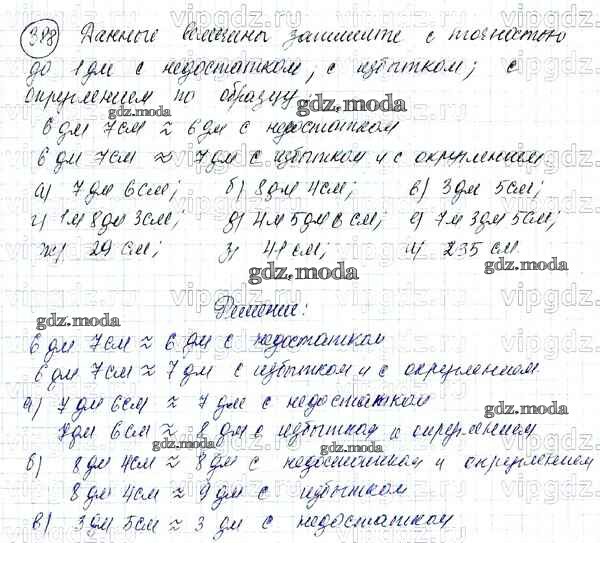 318 Данные величины запишите с точностью
до 1 дм с недостатком; с избытком; с
округлением по образцу:
gdz.moda
6 дм 7см ≈ 6 дм с недостатком
6 дм 7см ≈ 7 дм с избытком и с округлением
а) 7 дм 6см; б) 8дм 4см; в) 3дм 5см;
г) 1м 8дм 3см; д) 4м 5дм 6 см; е) 7м 3дм 5см;
ж) 29 см; з) 41 см; и) 235 см
gdz.moda
Решение:
6 дм 7см ≈ 6 дм с недостатком
6 дм 7см ≈ 7 дм с избытком и с округлением
а) 7 дм 6см ≈ 7 дм с недостатком
7дм 6см ≈ 8 дм с избытком и округлением
б) 8дм 4см ≈ 8дм с недостатком и округлением
8дм 4см ≈ 9дм с избытком
в) 3дм 5см ≈ 3 дм с недостатком